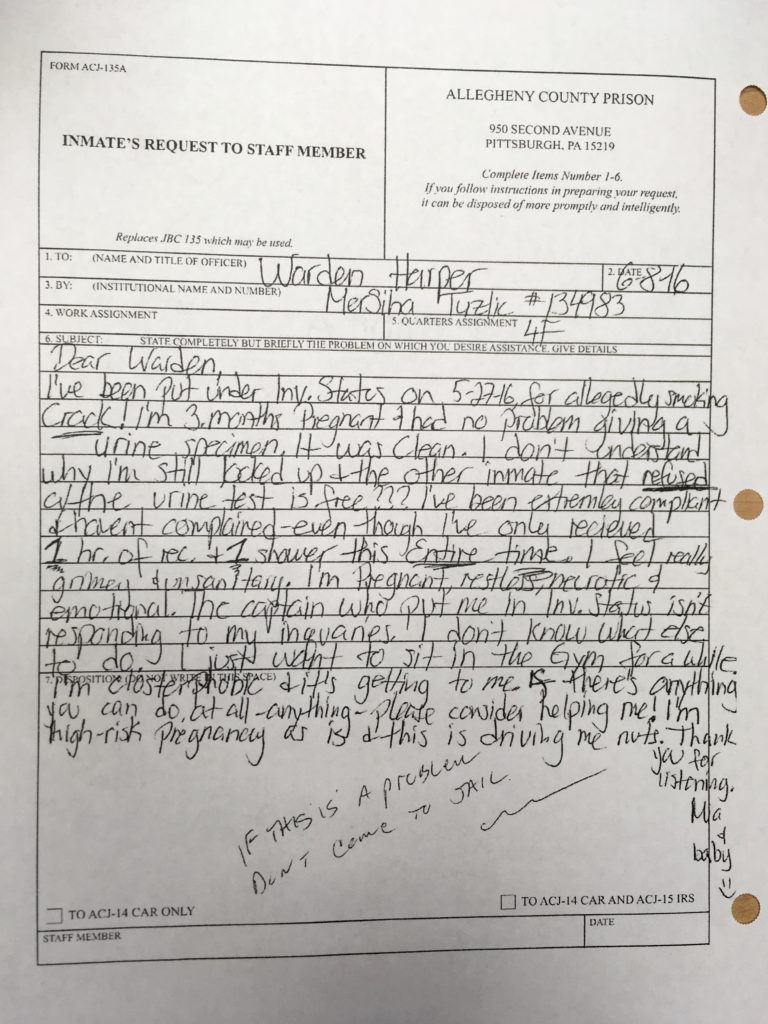 FORM ACJ-135A
INMATE'S REQUEST TO STAFF MEMBER
Replaces JBC 135 which may be used.
ALLEGHENY COUNTY PRISON
950 SECOND AVENUE
PITTSBURGH, PA 15219
Complete Items Number 1-6.
If you follow instructions in preparing your request,
it can be disposed of more promptly and intelligently.
1. TO: (NAME AND TITLE OF OFFICER) Warden Harper 2. DATE 6-8-16
3. BY: (INSTITUTIONAL NAME AND NUMBER) MerSiha Tuzlic #134983
4. WORK ASSIGNMENT 5. QUARTERS ASSIGNMENT 4F
6. SUBJECT: STATE COMPLETELY BUT BRIEFLY THE PROBLEM ON WHICH YOU DESIRE ASSISTANCE. GIVE DETAILS
Dear Warden,
I've been put under Inv. Status on 5-27-16, for allegedly smoking
Crack! I'm 3 months Pregnant & had no problem giving a
urine specimen. It was Clean. I don't understand
why I'm still locked up & the other inmate that refused
the urine test is free??? I've been extremley compliant
& havent complained-even though I've only recieved
1 hr. of rec. & 1 shower this Entire time. I feel really
grimey & unsanitary. I'm Pregnant, restless, neurotic &
emotional. The captain who put me in Inv. Status isn't
responding to my inquaries. I don't know what else
to do. I just want to sit in the Gym for a while.
7. DISPOSITION: (DO NOT WRITE IN THIS SPACE)
I'm closterphobic & it's getting to me. If there's anything
you can do, at all-anything-please consider helping me! I'm
high-risk pregnancy as is & this is driving me nuts. Thank
you for
listening.
Mia
&
baby
=)
IF THIS IS A PROBLEM
DON'T COME TO JAIL.
TO ACJ-14 CAR ONLY
TO ACJ-14 CAR AND ACJ-15 IRS
STAFF MEMBER DATE